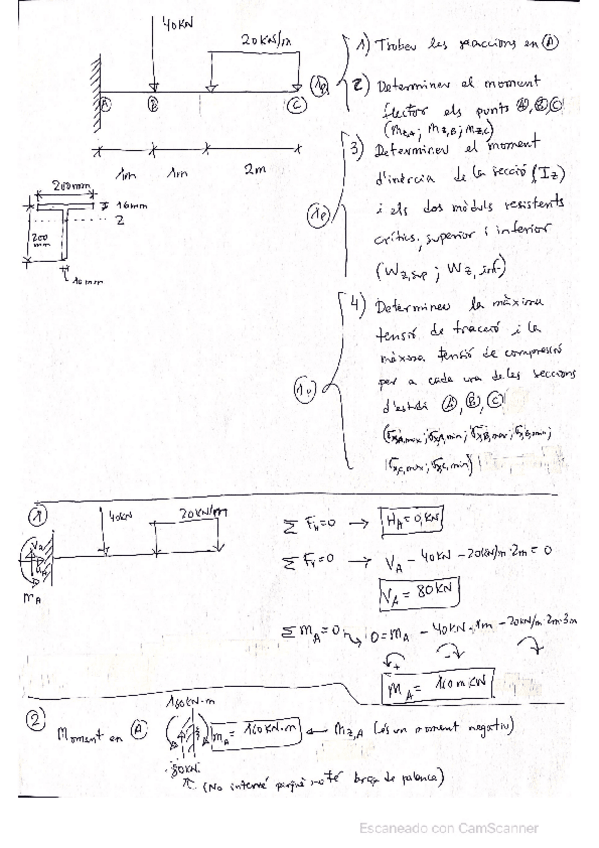 40KN
20KN/m
A
B
C
1m
1m
2m
200mm
16mm
Z
200 mm
16mm
1p
1) Trobeu les reaccions en A
2) Determineu el moment
flector els punts A, B, C
(Mz,A; Mz,B; Mz,C)
1p
3) Determineu el moment
d'inèrcia de la secció (Iz)
i els dos mòduls resistents
crítics, superior i inferior
(Wz,sup; Wz,inf)
4) Determineu la màxima
tensió de tracció i la
màxima tensió de compressió
per a cada una de les seccions
d'estudi A, B, C
(σx,A,max; σx,A,min; σx,B,max; σx,B,min;
σx,C,max; σx,C,min)
1
40KN
20KN/m
VA
HA
MA
ΣFH=0 → HA=0,KN
ΣFV=0 → VA - 40KN - 20KN/m·2m = 0
VA = 80KN
ΣMA=0 → 0=MA - 40KN·1m - 20KN/m·2m·3m
+
-
MA = 160m·KN
2
Moment en A
160KN·m
MA = 160KN·m ← Mz,A (és un moment negatiu)
80KN
(No intervé perquè no té braç de palanca)
Escaneado con CamScanner